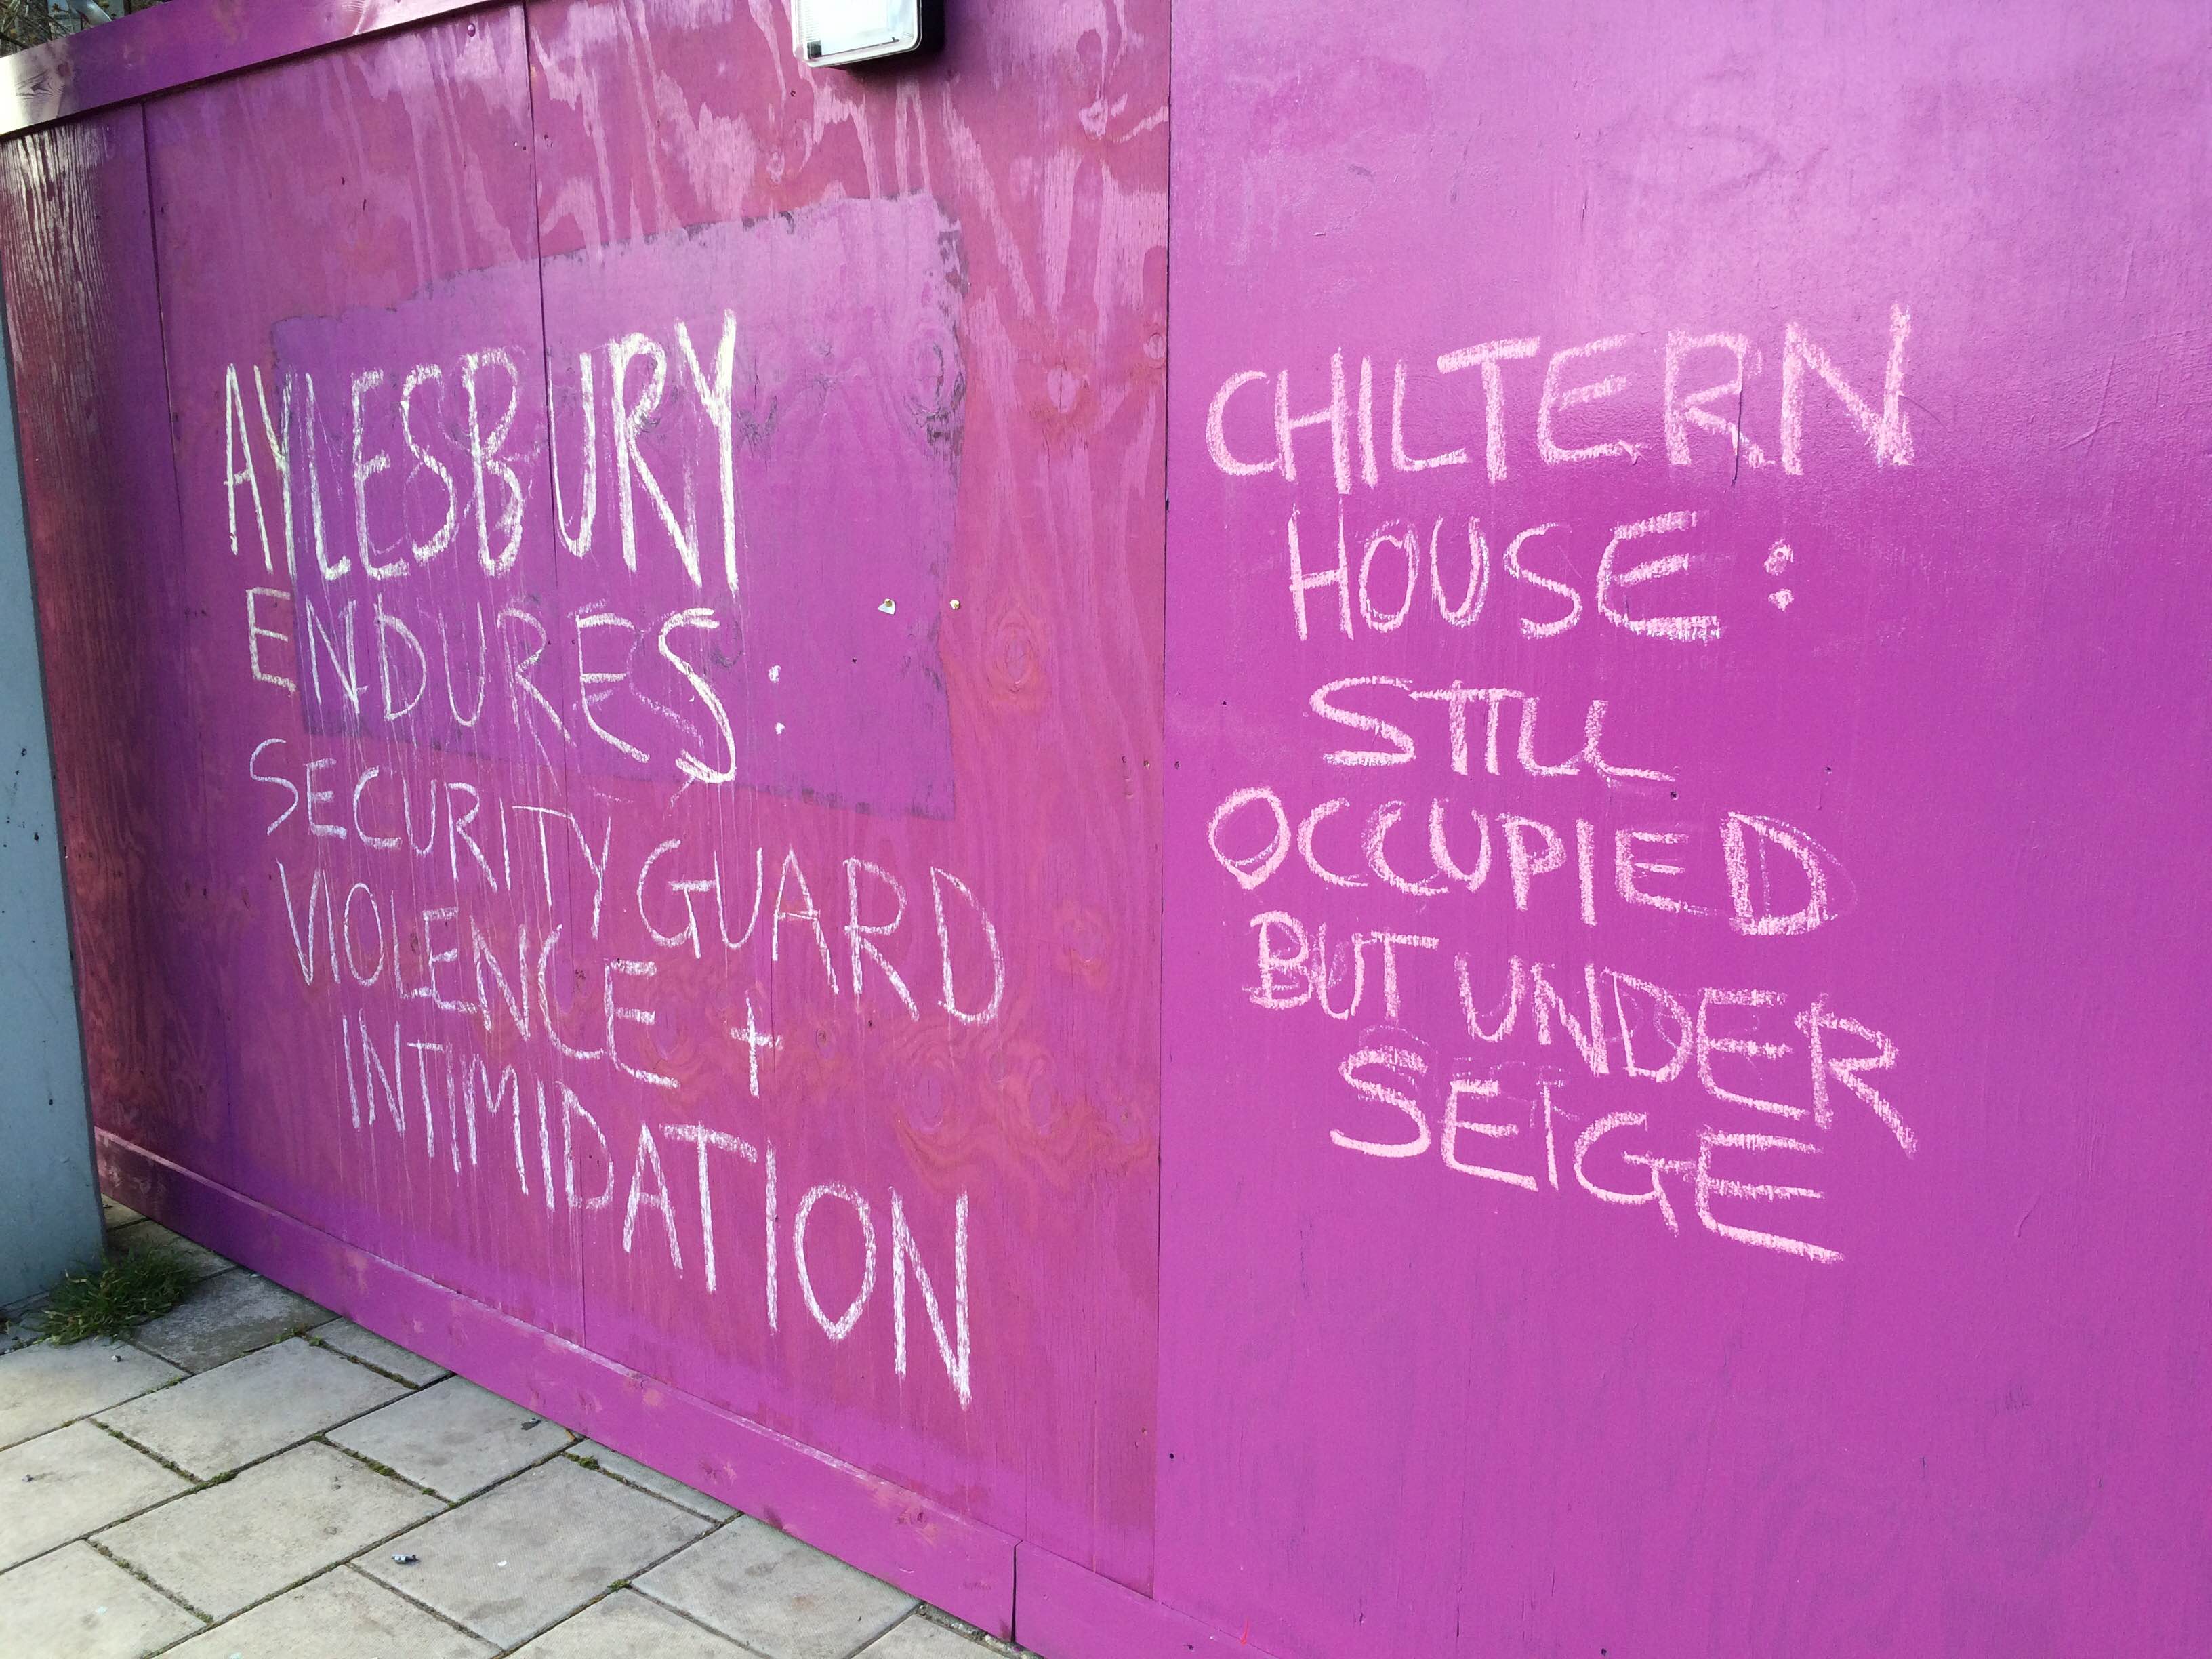 AYLESBURY
ENDURES:
SECURITY GUARD
VIOLENCE +
INTIMIDATION
CHILTERN
HOUSE:
STILL
OCCUPIED
BUT UNDER
SEIGE